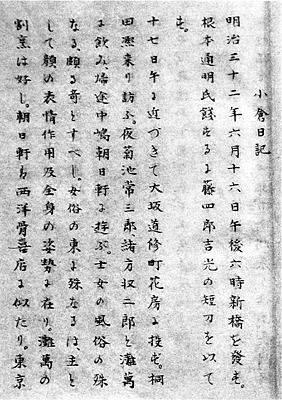 小倉日記
明治三十二年六月十六日午後六時新橋を發す。
根本通明氏餞するに藤四郎吉光の短刀を以て
す。
十七日午に近づきて大坂道修町花房に投ず。桐
田熙來り訪ふ。夜菊池常三郎緒方収二郎と灘萬
に飲み、帰途中嶋朝日軒に遊ぶ。士女の風俗の殊
なる、頗る奇とすべし。女俗の東に殊なるは、主と
して顔の表情作用及全身の姿勢に在り。灘萬の
割烹は好し。朝日軒も西洋骨喜店に似たり。東京